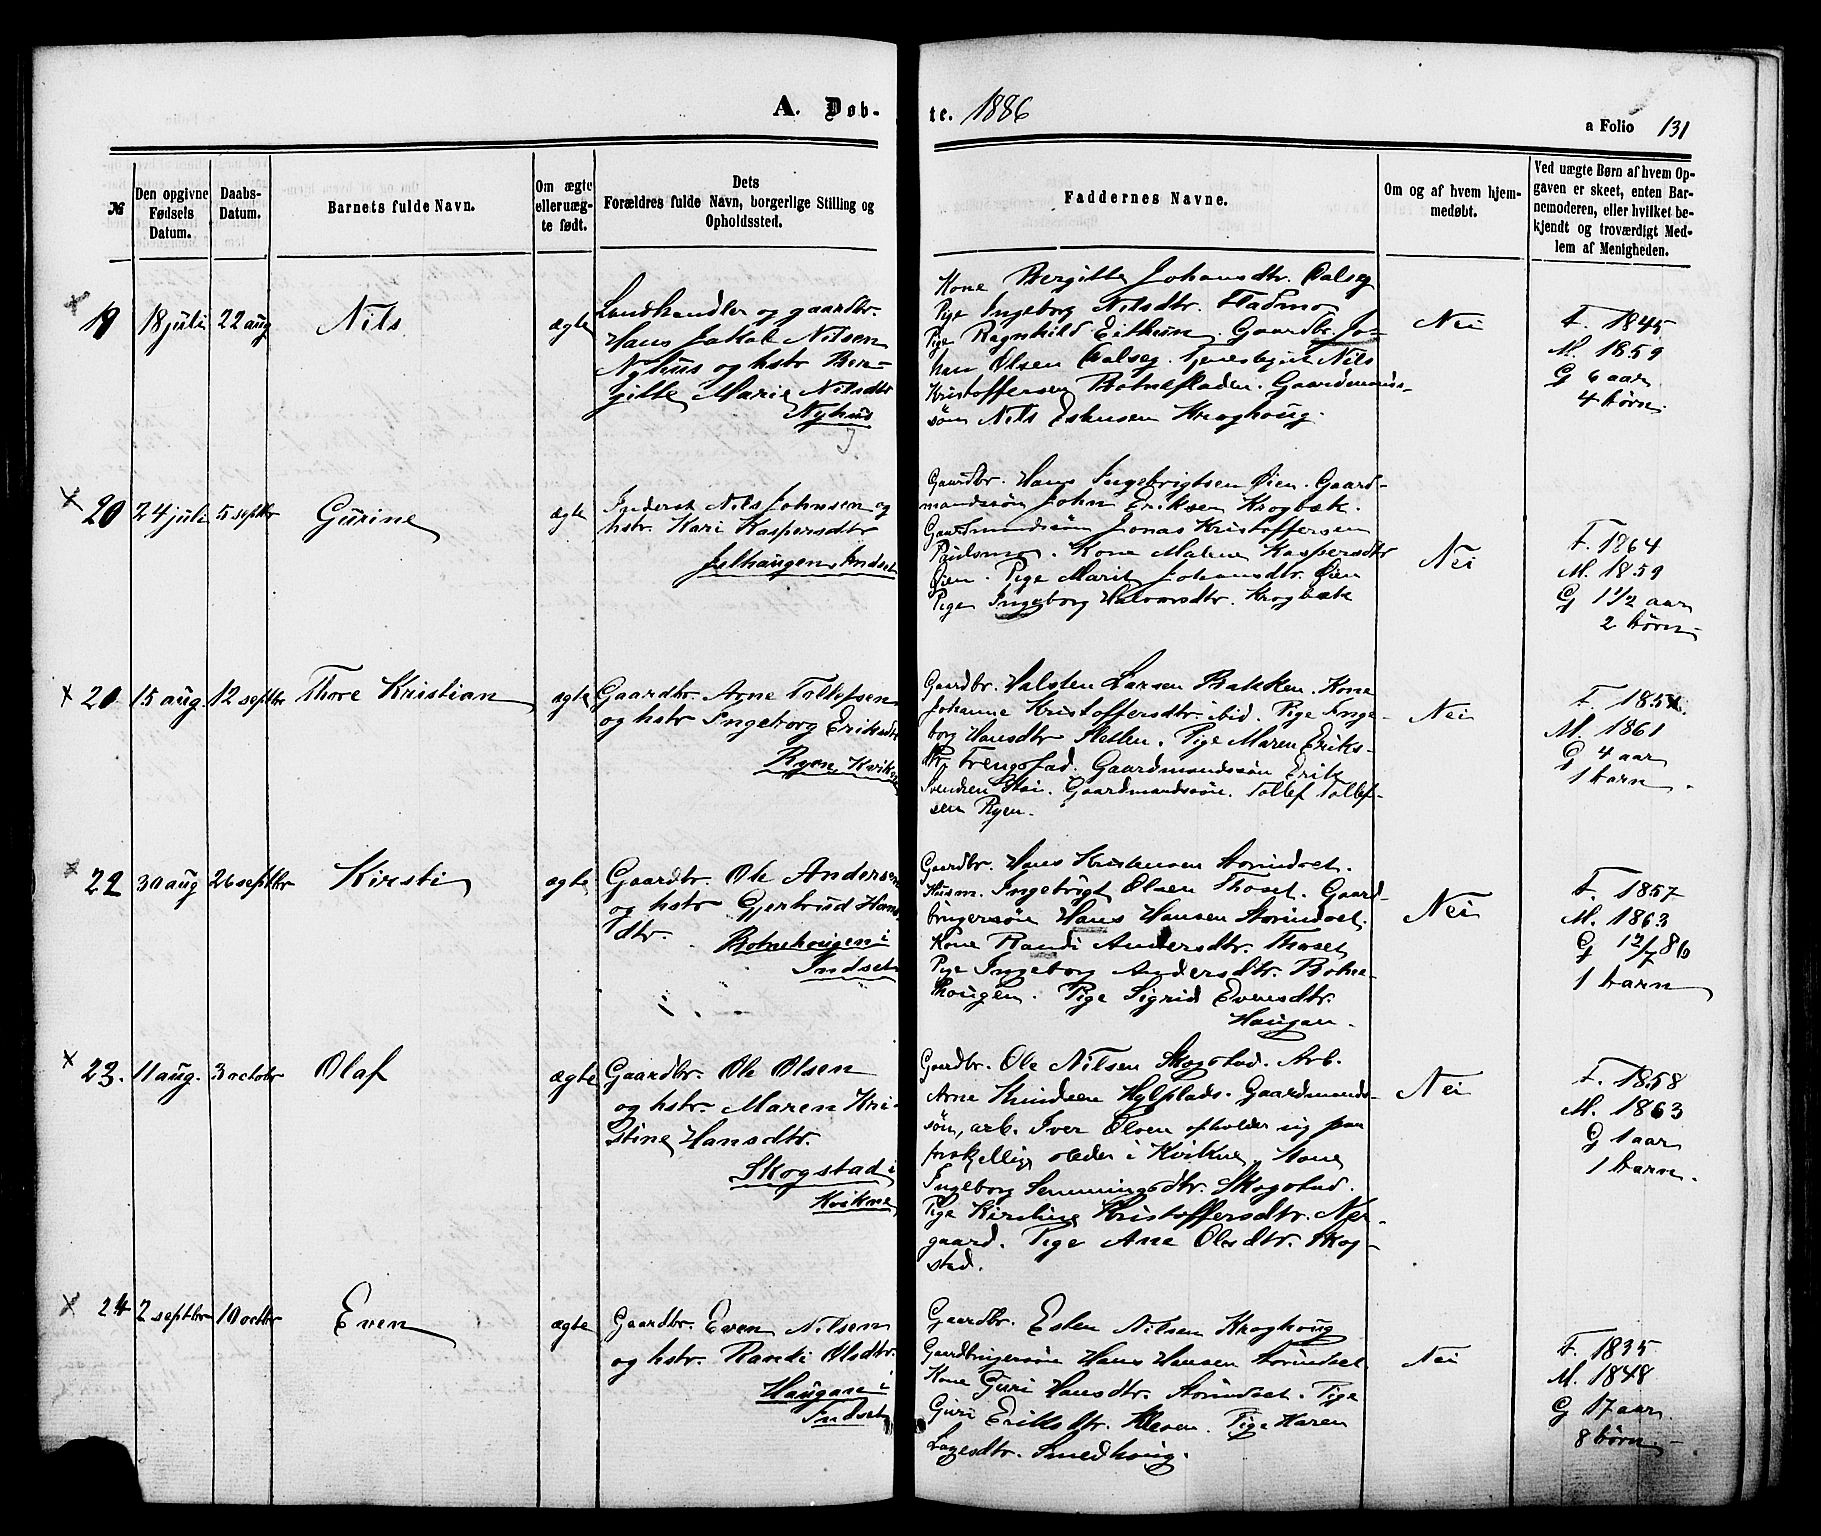 A. Døb-te. 1886
a Folio 131
№
Den opgivne Fødsels Datum.
Daabs-Datum.
Barnets fulde Navn.
Om ægte eller uæg-te født.
Dets
Forældres fulde Navn, borgerlige Stilling og Opholdssted.
Faddernes Navne.
Om og af hvem hjem-medøbt.
Ved uægte Børn af hvem Op-gaven er skeet, enten Bar-nemoderen, eller hvilket be-kjendt og troværdigt Med-lem af Menigheden.
19 18 juli 22 aug Nils ægte
Landhandler og gaardbr.
Hans Jakob Nilsen
Nyhus og hstr Ber-
gitte Marie Nilsdtr
Nyhus
Kone Bergitte Johansdtr. Dalseg
Pige Ingeborg Nilsdtr. Fladmo
Pige Ragnhild Eithun. Gaardbr. Jo-
han Olsen Dalseg. Nils
Kristoffersen Gaardmans-
søn Nils Estensen Kroghoug.
Nei
F. 1845
M. 1859
G 6 aar
4 børn.
20 24 juli 5 septbr Gurine ægte
Inderst Nils Johnsen og
hstr. Kari Kaspersdtr
Indset
Gaardbr. Hans Ingebrigtsen Øien. Gaard-
mandssøn John Eriksen Krogbæk.
Gaardmandssøn Jonas Kristoffersen
Paulsmo. Kone Malene Kaspersdtr
Øien. Pige Marit Johansdtr. Øien
Pige Ingeborg Halvorsdtr. Krogbæk
Nei
F. 1864
M. 1859
G 1 1/2 aar
2 børn
20 15 aug 12 septbr Thore Kristian ægte
Gaardbr. Arne Tollefsen
og hstr Ingeborg Eriksdtr
Ryen, Kvikne
Gaardbr. Halsten Larsen Bakken. Kone
Johanne Kristoffersdtr. ibid. Pige Inge-
borg Hansdtr Pige Maren Eriks-
dtr. Frengstad. Gaardmandssøn Erik
Svendsen Gaardmandssøn. Tollef Tollef-
sen Ryen.
Nei
F. 185
M. 1861
G 4 aar
1 barn.
22 30 aug 26 septbr Kirsti ægte
Gaardbr. Ole Andersen
og hstr Gjertrud Hans
dtr.
Botnehougen i
Indset
Gaardbr. Hans Kristensen Storindset.
Husm. Ingebrigt Olsen Thoset. Gaard-
brugersøn Hans Hansen Storindset.
Kone Randi Andersdtr. Thoset
Pige Ingeborg Andersdtr. Botne-
hougen. Pige Sigrid Evensdtr.
Haugan.
Nei
F. 1857
M. 1863
G 1 2/7 86
1 barn
23. 11 aug. 3 octobr Olaf ægte
Gaardbr. Ole Olsen
og hstr. Maren Kri-
stine Hansdtr.
Skogstad i
Kvikne
Gaardbr. Ole Nilsen Skogstad. Arb.
Arne Hylplads. Gaardmands-
søn, arb. Iver Olsen opholder sig paa
forskjellige steder i Kvikne, Kone
Ingeborg Semmingsdtr. Skogstad.
Pige Kirstine Kristoffersdtr. Ner-
gaard. Pige Ane Olsdtr. Skog-
stad.
Nei
F. 1858
M. 1863
G 1 aar
1 barn.
24 2 septbr 10 octbr Even ægte
Gaardbr. Even Nilsen
og hstr. Randi Olsdtr.
Haugane i
Indset
Gaardbr. Esten Nilsen Kroghoug
Gaardbrugersøn Hans Hansen Storindset
Kone Guri Hansdtr. Storindset. Pige
Guri Eriksdtr. Pige Karen
Smedhoug.
Nei
F. 1835
M. 1848
G 17 aar
8 børn.